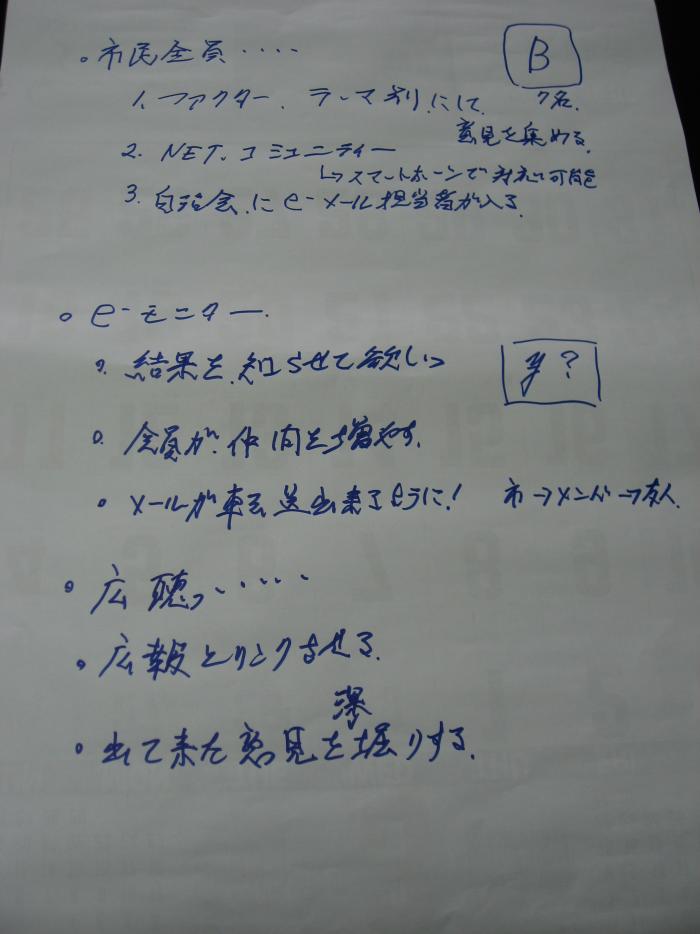 。市民全員‥‥
B
1. ファクター、テーマ別にして 7名.
意見を集める.
2. NET. コミュニティー
↳スマートホーンで対応可能
3. 自治会に e-メール担当者が入る.
。e-モニター.
。結果を知らせて欲しい
y?
。会員が仲間を増やす.
・メールが転送出来るように! 市→メンバー→友人
・広聴‥‥‥
・広報とリンクさせる.
深
・出て来た意見を堀りする.